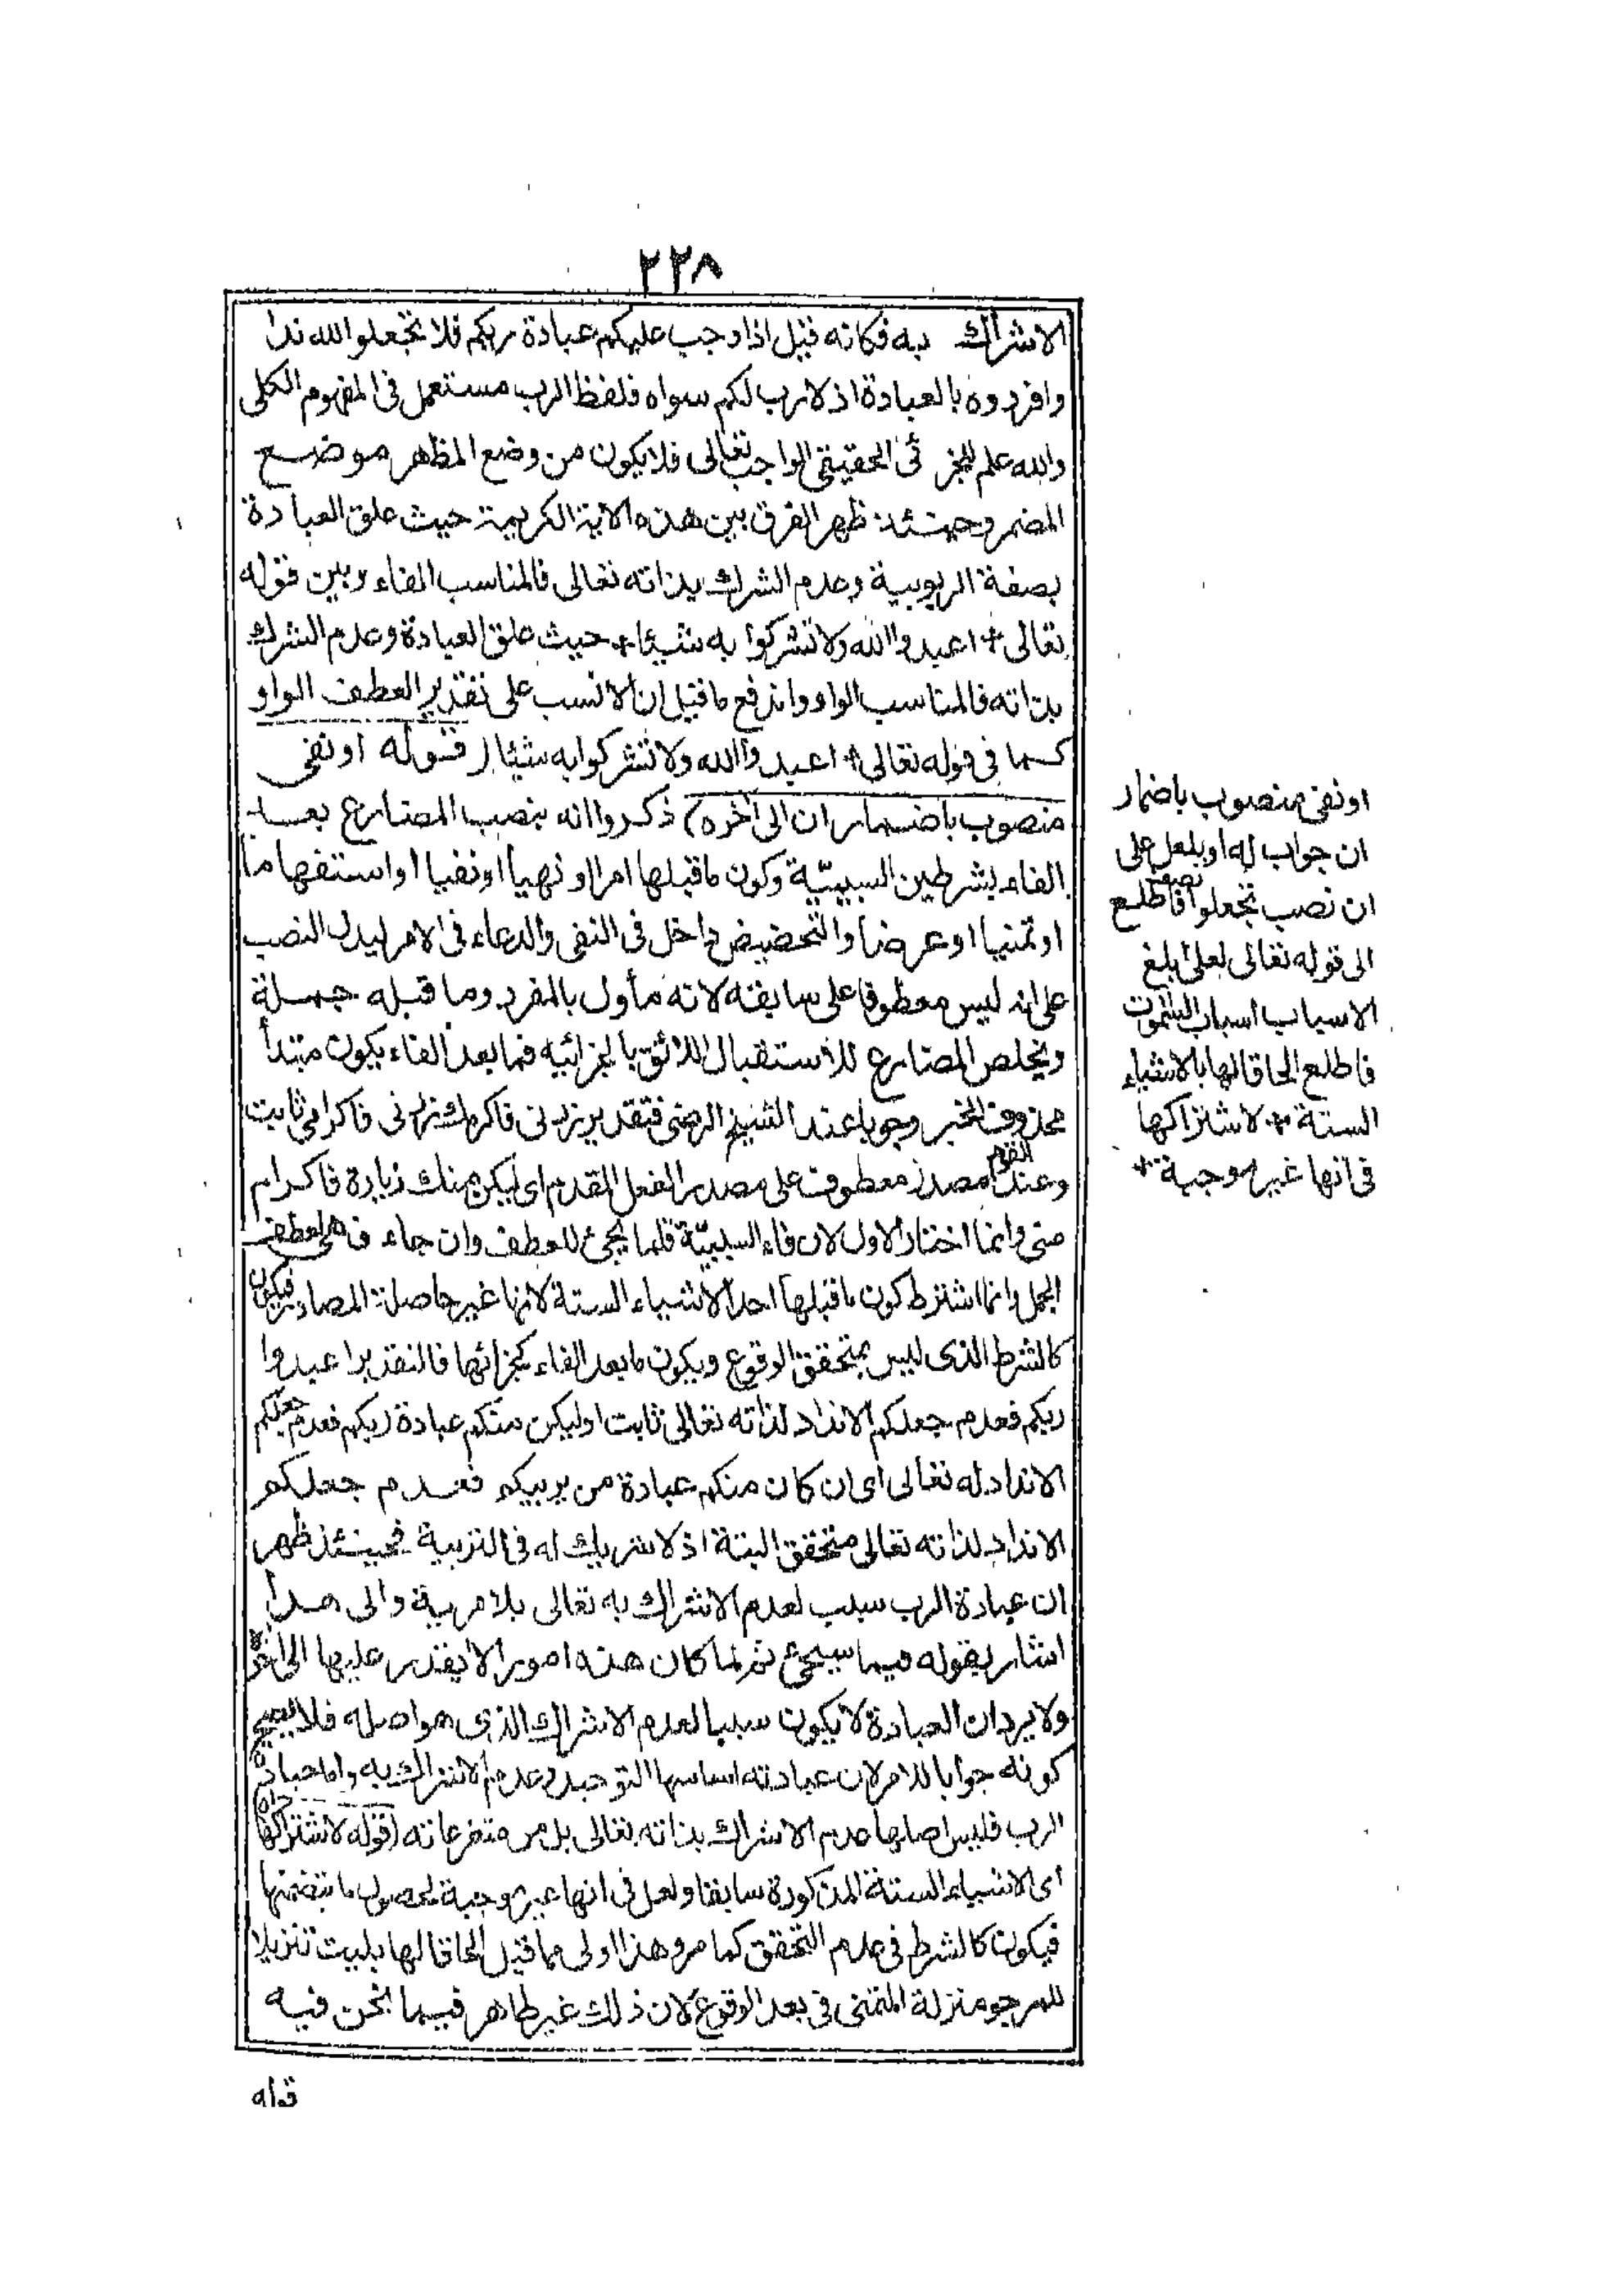 ٢٢٨
الاشراك به فكانه قيل اذا وجب عليكم عبادة ربكم فلا تجعلوا لله ندا
وافردوه بالعبادة اذ لا رب لكم سواه فلفظ الرب مستعمل فى المفهوم الكلى
والله علم للجزئى الحقيقى الواجب تعالى فلا يكون من وضع المظهر موضع
المضمر وحينئذ ظهر الفرق بين هذه الاية الكريمة حيث علق العبادة
بصفة الربوبية وعدم الشرك بذاته تعالى فالمناسب الفاء وبين قوله
تعالى + اعبدوا الله ولا تشركوا به شيئا + حيث علق العبادة وعدم الشرك
بذاته فالمناسب الواو واندفع ما قيل ان الانسب على تقدير العطف الواو
كما فى قوله تعالى + اعبدوا الله ولا تشركوا به شيئا ( قوله او نفى
منصوب باضمار ان الى آخره ) ذكروا انه ينصب المضارع بعد
الفاء بشرطين السببيّة وكون ما قبلها امرا او نهيا او نفيا او استفهاما
او تمنيا او عرضا والتحضيض داخل فى النفى والدعاء فى الامر ليدل النصب
على انه ليس معطوفا على سابقته لانه مأول بالمفرد وما قبله جملة
ويخلص المضارع للاستقبال اللائق بالجزائيه فما بعد الفاء يكون مبتدأ
محذوف الخبر وجوبا عند الشيخ الرضى فتقدير زرنى فاكرمك زرنى فاكرامى ثابت
وعند القوم مصدر معطوف على مصدر الفعل المقدم اى ليكن منك زيارة فاكرام
منى وانما اختار الاول لان فاء السببيّة قلما يجئ للعطف وان جاء فهى لعطف
الجمل وانما اشترط كون ما قبلها احد الاشياء الستة لانها غير حاصلة المصادر فيكون
كالشرط الذى ليس بمتحقق الوقوع ويكون ما بعد الفاء كجزائها فالتقدير اعبدوا
ربكم فعدم جعلكم الانداد لذاته تعالى ثابت او ليكن منكم عبادة ربكم فعدم جعلكم
الانداد له تعالى اى ان كان منكم عبادة من يربيكم فعدم جعلكم
الانداد لذاته تعالى متحقق البتة اذ لا شريك له فى التربية فحينئذ ظهر
ان عبادة الرب سبب لعدم الاشراك به تعالى بلا مرية والى هذا
اشار بقوله فيما سيجئ ثم لما كان هذه امورا لا يقدر عليها الى آخره
ولا يرد ان العبادة لا يكون سببا لعدم الاشراك الذى هو اصله فلا يصح
كونه جوابا للامر لان عبادته اساسها التوحيد وعدم الاشراك به واما عبادة
الرب فليس اصلها عدم الاشراك بذاته تعالى بل من متفرعاته ( قوله لاشتراكها )
اى الاشياء الستة المذكورة سابقا ولعل فى انها غير موجبة لحصول ما يتضمنها
فيكون كالشرط فى عدم التحقق كما مر وهذا اولى مما قيل الحاقا لها بليت تنزيلا
للمرجو منزلة المتمنى فى بعد الوقوع لان ذلك غير ظاهر فيما نحن فيه
قوله
او نفى منصوب باضمار
ان جواب له او بلعل على
ان نصب تجعلوا نصب فاطلع
الى قوله تعالى لعلى ابلغ
الاسباب اسباب السموت
فاطلع الحاقا لها بالاشياء
الستة + لاشتراكها
فى انها غير موجبة +